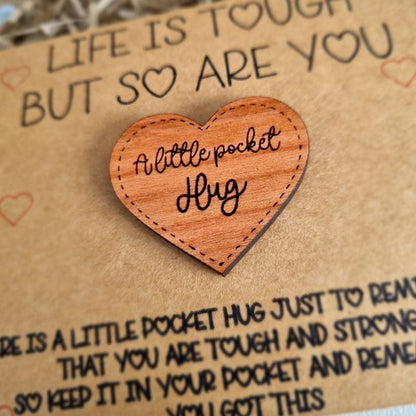 LIFE IS TOUGH
BUT SO ARE YOU
A little pocket
Hug
RE IS A LITTLE POCKET HUG JUST TO REMI
THAT YOU ARE TOUGH AND STRONG
SO KEEP IT IN YOUR POCKET AND REMEM
YOU GOT THIS